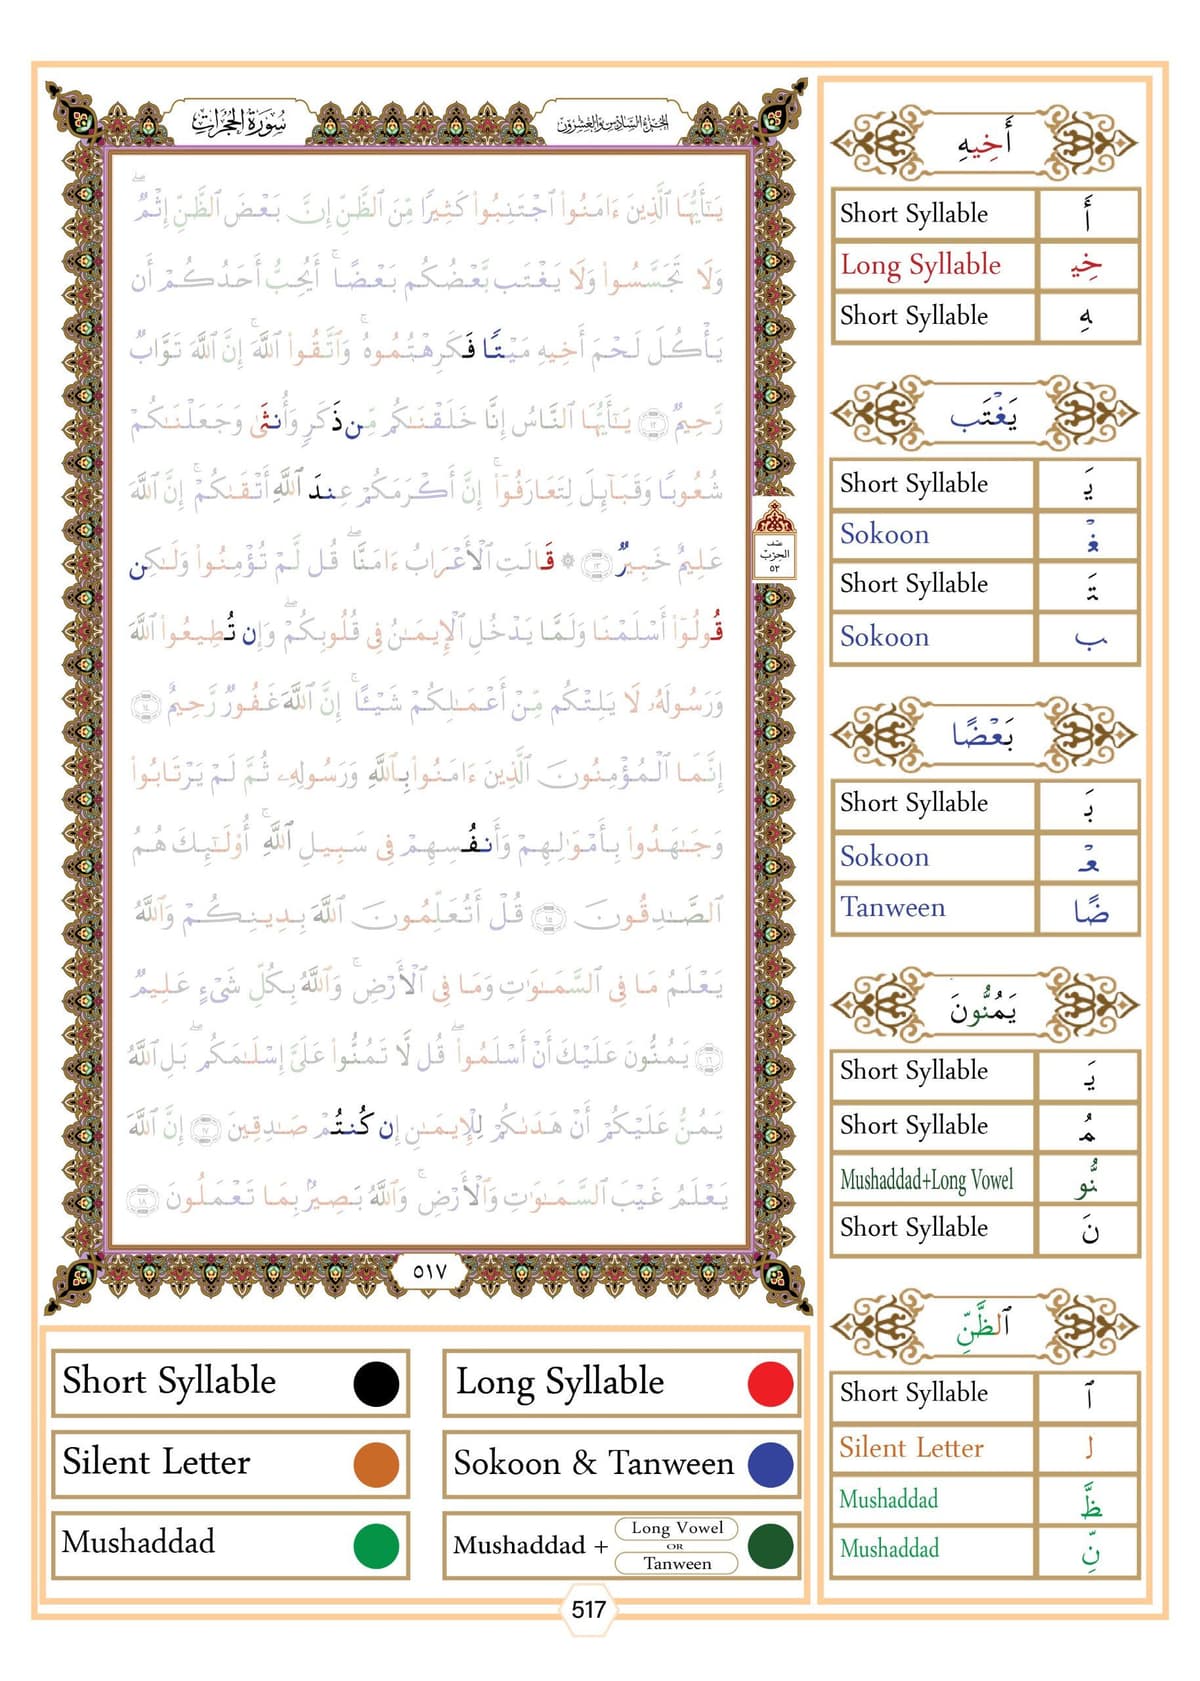 سُورَةُ الحُجُرَاتِ
الجُزْءُ السَّادِسُ وَالعِشْرُونَ
يَـٰٓأَيُّهَا ٱلَّذِينَ ءَامَنُوا۟ ٱجْتَنِبُوا۟ كَثِيرًا مِّنَ ٱلظَّنِّ إِنَّ بَعْضَ ٱلظَّنِّ إِثْمٌ ۖ
وَلَا تَجَسَّسُوا۟ وَلَا يَغْتَب بَّعْضُكُم بَعْضًا ۚ أَيُحِبُّ أَحَدُكُمْ أَن
يَأْكُلَ لَحْمَ أَخِيهِ مَيْتًا فَكَرِهْتُمُوهُ ۚ وَٱتَّقُوا۟ ٱللَّهَ ۚ إِنَّ ٱللَّهَ تَوَّابٌ
رَّحِيمٌ ١٢ يَـٰٓأَيُّهَا ٱلنَّاسُ إِنَّا خَلَقْنَـٰكُم مِّن ذَكَرٍ وَأُنثَىٰ وَجَعَلْنَـٰكُمْ
شُعُوبًا وَقَبَآئِلَ لِتَعَارَفُوٓا۟ ۚ إِنَّ أَكْرَمَكُمْ عِندَ ٱللَّهِ أَتْقَىٰكُمْ ۚ إِنَّ ٱللَّهَ
عَلِيمٌ خَبِيرٌ ١٣ ۞ قَالَتِ ٱلْأَعْرَابُ ءَامَنَّا ۖ قُل لَّمْ تُؤْمِنُوا۟ وَلَـٰكِن
قُولُوٓا۟ أَسْلَمْنَا وَلَمَّا يَدْخُلِ ٱلْإِيمَـٰنُ فِى قُلُوبِكُمْ ۖ وَإِن تُطِيعُوا۟ ٱللَّهَ
وَرَسُولَهُۥ لَا يَلِتْكُم مِّنْ أَعْمَـٰلِكُمْ شَيْـًٔا ۚ إِنَّ ٱللَّهَ غَفُورٌ رَّحِيمٌ ١٤
إِنَّمَا ٱلْمُؤْمِنُونَ ٱلَّذِينَ ءَامَنُوا۟ بِٱللَّهِ وَرَسُولِهِۦ ثُمَّ لَمْ يَرْتَابُوا۟
وَجَـٰهَدُوا۟ بِأَمْوَٰلِهِمْ وَأَنفُسِهِمْ فِى سَبِيلِ ٱللَّهِ ۚ أُو۟لَـٰٓئِكَ هُمُ
ٱلصَّـٰدِقُونَ ١٥ قُلْ أَتُعَلِّمُونَ ٱللَّهَ بِدِينِكُمْ وَٱللَّهُ
يَعْلَمُ مَا فِى ٱلسَّمَـٰوَٰتِ وَمَا فِى ٱلْأَرْضِ ۚ وَٱللَّهُ بِكُلِّ شَىْءٍ عَلِيمٌ
١٦ يَمُنُّونَ عَلَيْكَ أَنْ أَسْلَمُوا۟ ۖ قُل لَّا تَمُنُّوا۟ عَلَىَّ إِسْلَـٰمَكُم ۖ بَلِ ٱللَّهُ
يَمُنُّ عَلَيْكُمْ أَنْ هَدَىٰكُمْ لِلْإِيمَـٰنِ إِن كُنتُمْ صَـٰدِقِينَ ١٧ إِنَّ ٱللَّهَ
يَعْلَمُ غَيْبَ ٱلسَّمَـٰوَٰتِ وَٱلْأَرْضِ ۚ وَٱللَّهُ بَصِيرٌۢ بِمَا تَعْمَلُونَ ١٨
نصف
الحزب
٥٢
٥١٧
أَخِيهِ
Short Syllable أَ
Long Syllable خِيـ
Short Syllable ـهِ
يَغْتَب
Short Syllable يَـ
Sokoon ـغْـ
Short Syllable ـتَـ
Sokoon ـب
بَعْضًا
Short Syllable بَـ
Sokoon ـعْـ
Tanween ضًا
يَمُنُّونَ
Short Syllable يَـ
Short Syllable ـمُـ
Mushaddad+Long Vowel ـنُّو
Short Syllable نَ
ٱلظَّنِّ
Short Syllable ٱ
Silent Letter لـ
Mushaddad ـظَّـ
Mushaddad ـنِّ
Short Syllable
Long Syllable
Silent Letter
Sokoon & Tanween
Mushaddad
Mushaddad + Long Vowel OR Tanween
517